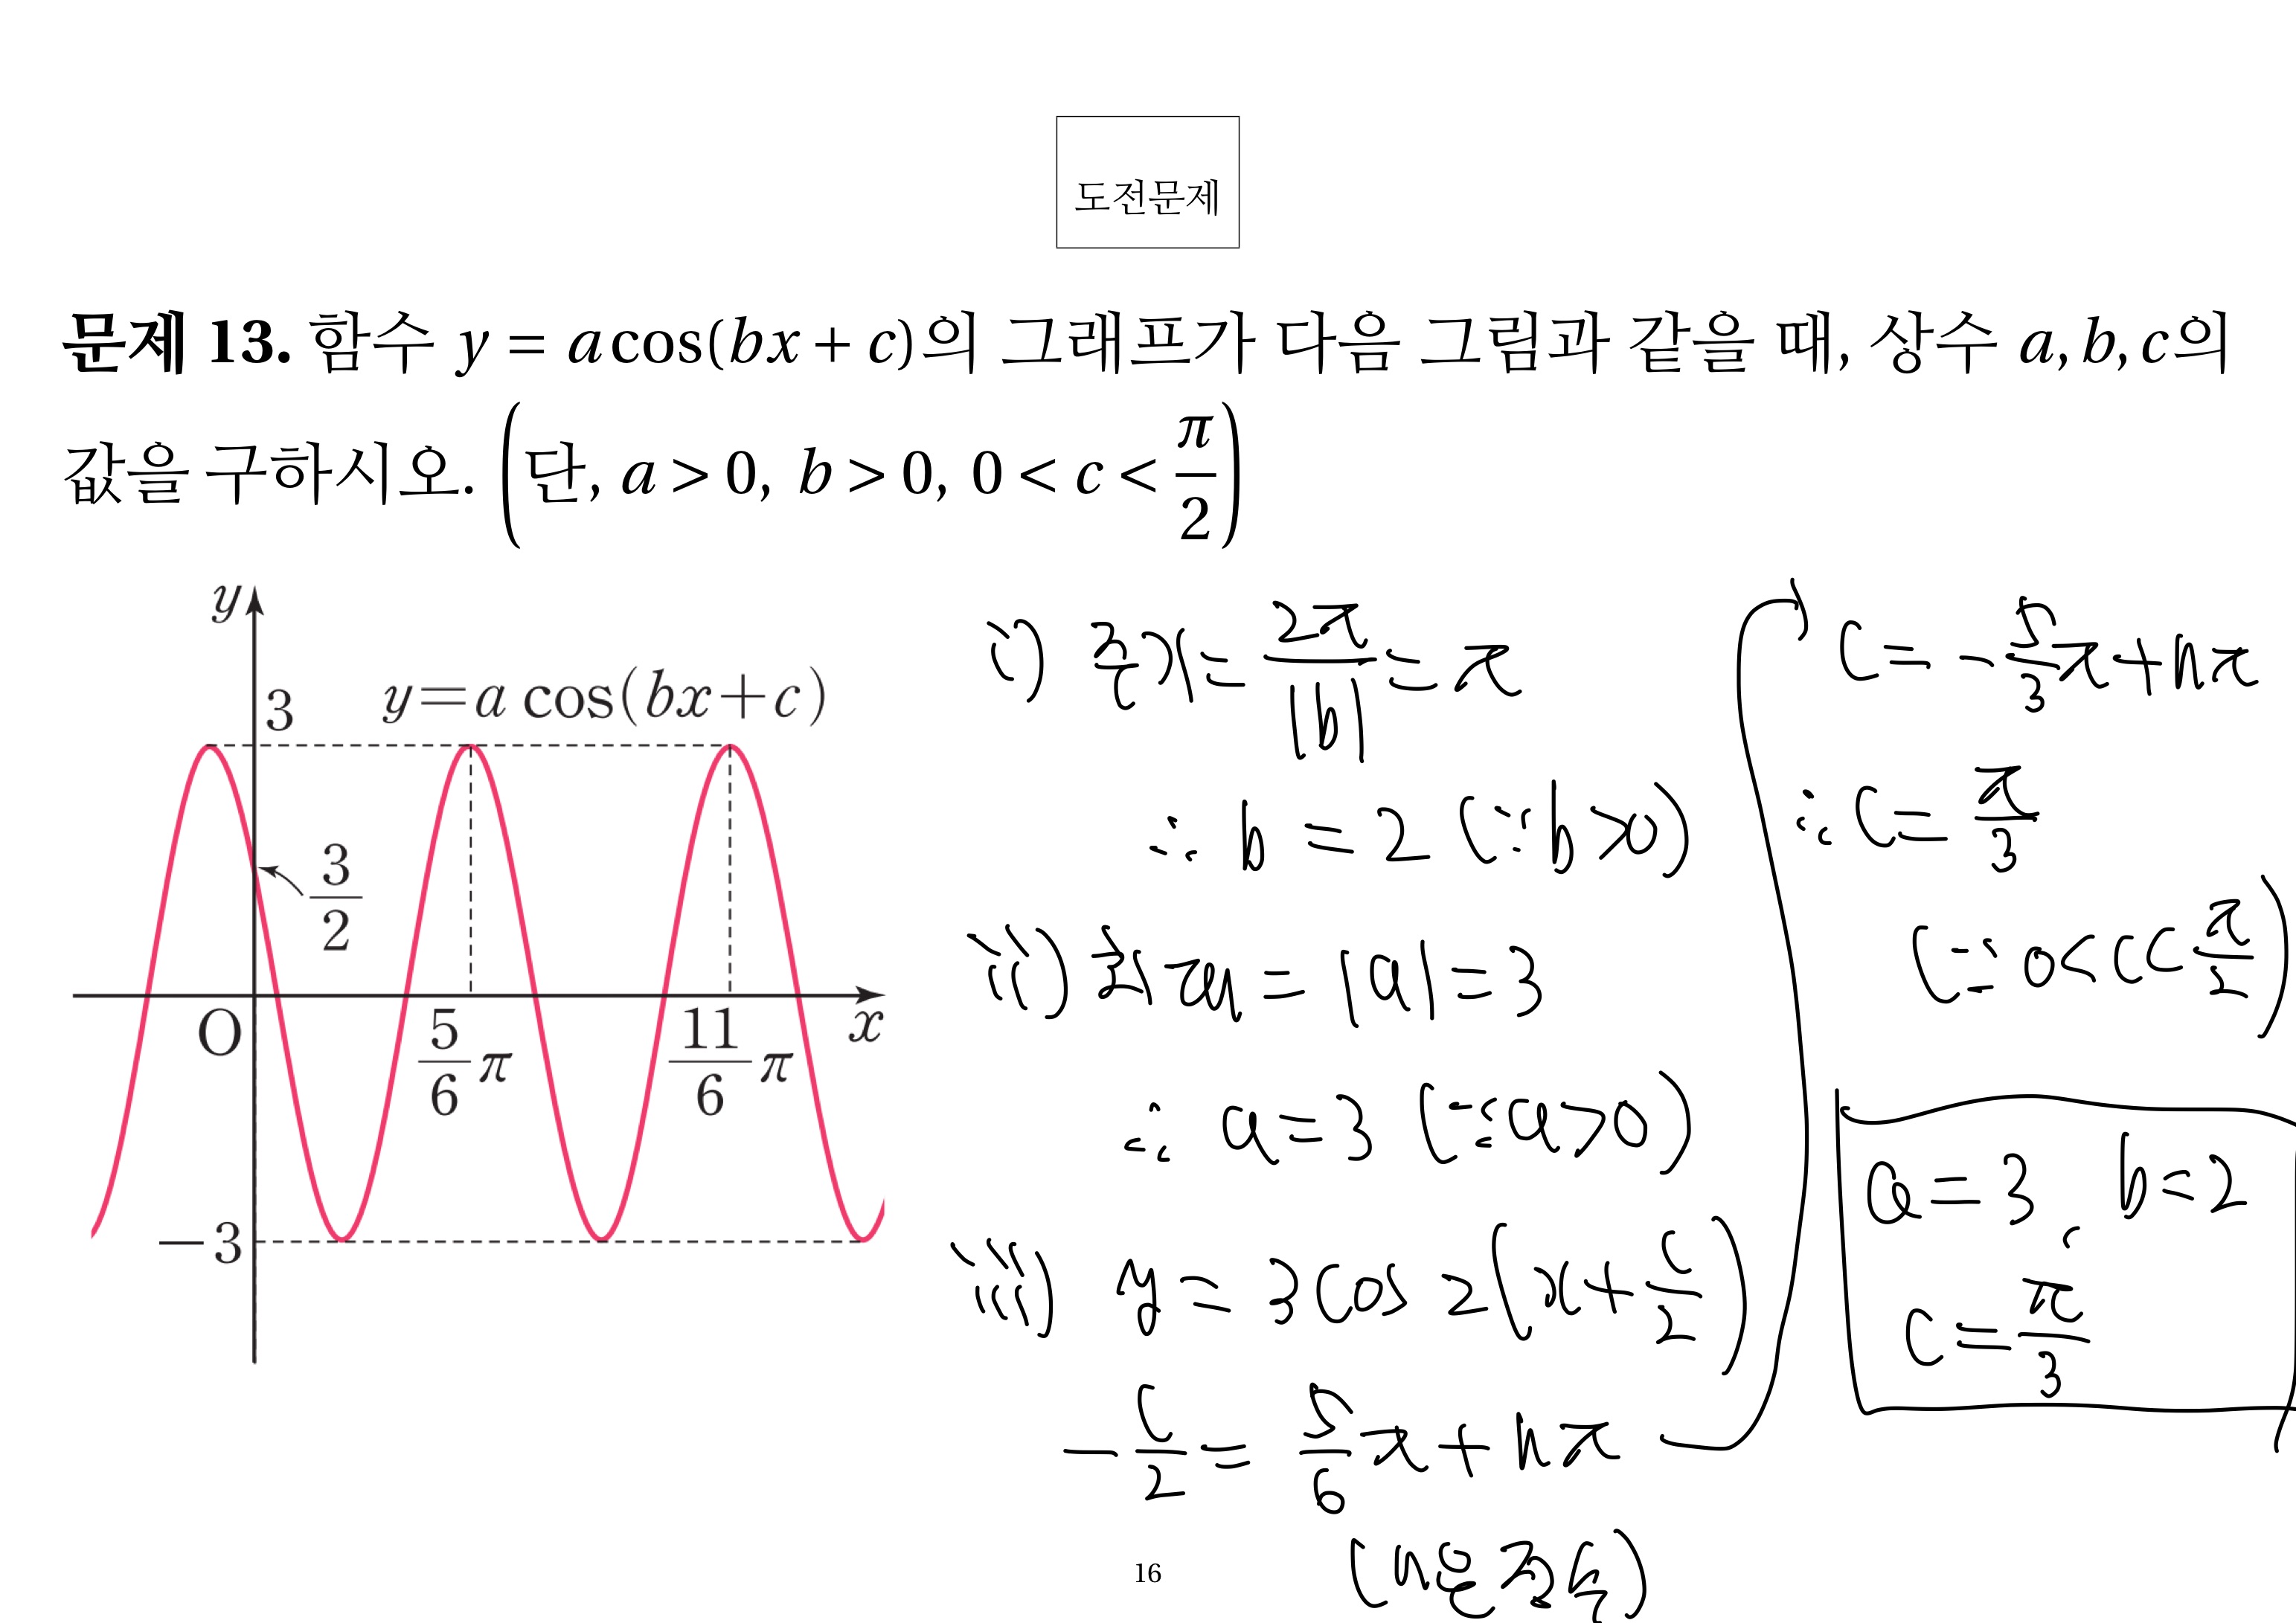 도전문제
문제 13. 함수 y = a cos(bx + c)의 그래프가 다음 그림과 같을 때, 상수 a, b, c의
값을 구하시오. (단, a > 0, b > 0, 0 < c < π/2)
y
3
y=a cos(bx+c)
3/2
O
5/6 π
11/6 π
x
−3
i) 주기 = 2π/|b| = π
∴ b = 2 (∵ b>0)
ii) 최댓값 = |a| = 3
∴ a=3 (∵ a>0)
iii) y = 3cos 2(x+c/2)
-c/2 = 5/6 π + nπ
(n은 정수)
c = -5/3 π + nπ
∴ c = π/3
(∵ 0 < c < π/2)
a=3, b=2
c=π/3
16